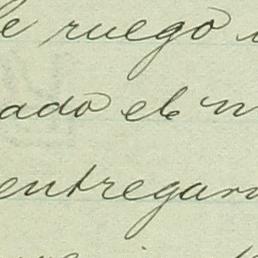 e ruego
ado el n
entregar